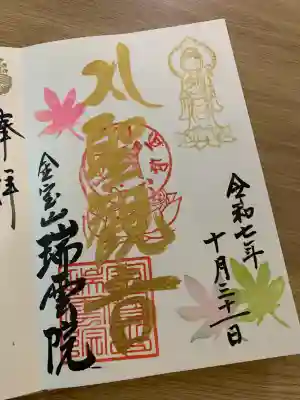 令和七年
十月三十一日
聖観音
金宝山 瑞雲院
奉拝